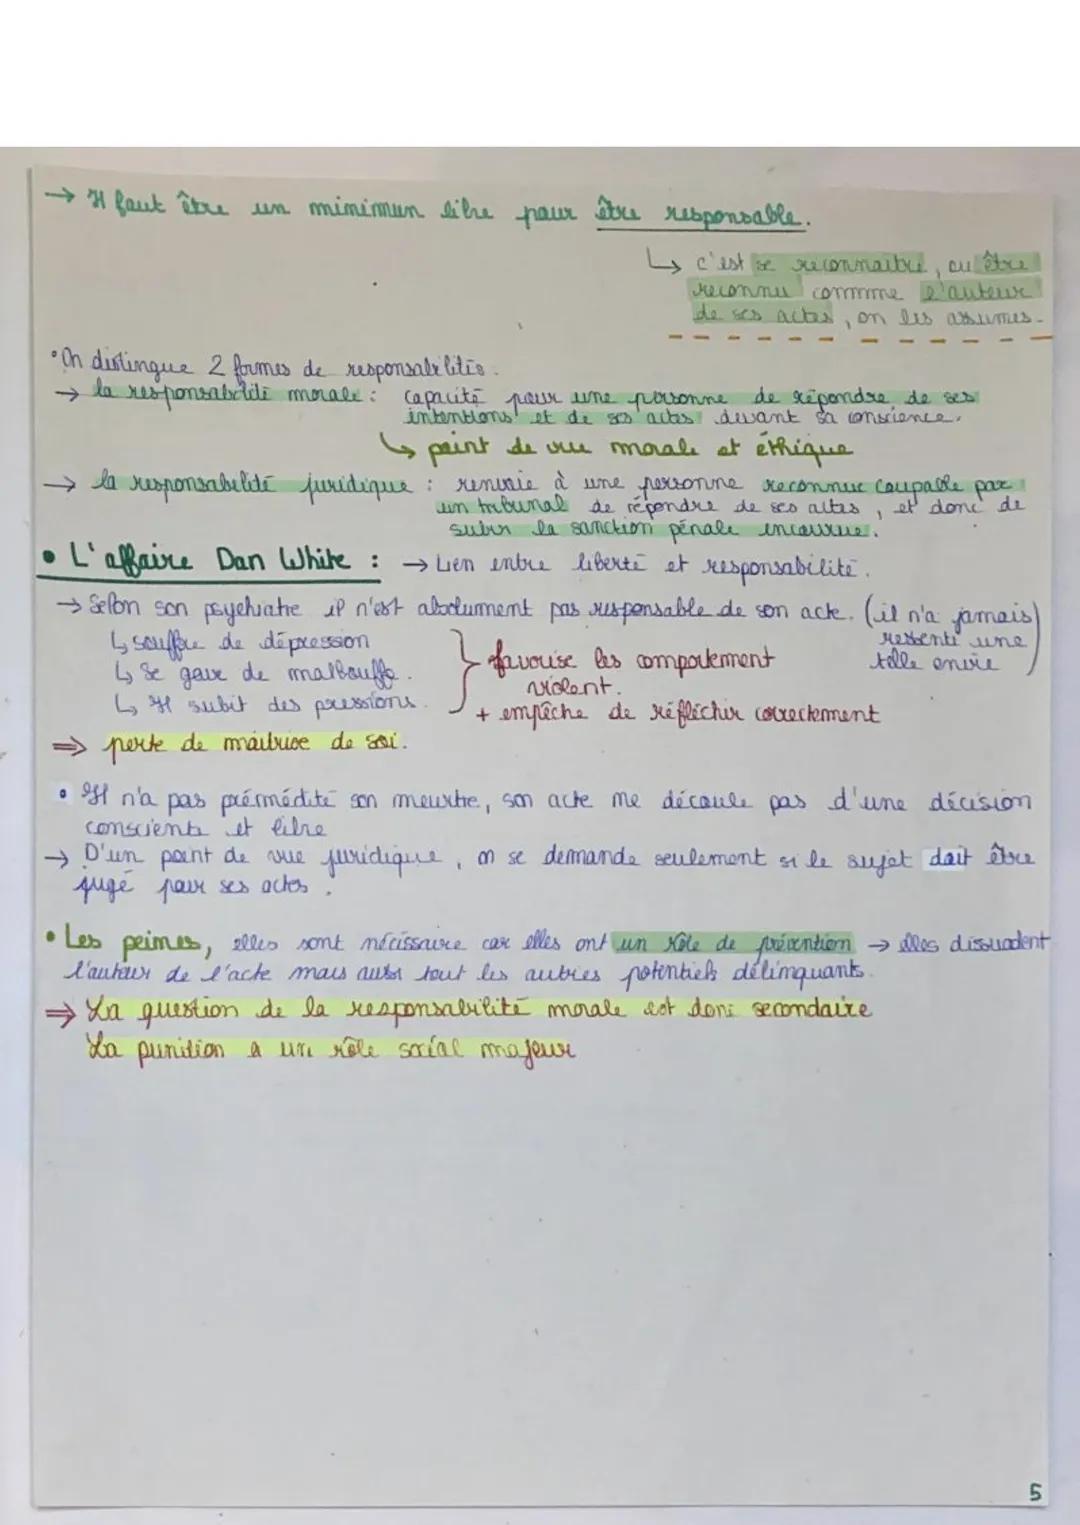 → Il faut être un minimun libre pour être responsable.
↳ c'est se reconnaitre, ou être
reconnu commme l'auteur
de ses actes, on les assumes.
• On distingue 2 formes de responsabilités.
→ la responsabilité morale : capacité pour une personne de répondre de ses
intentions et de ses actes devant sa conscience.
↳ point de vue morale et éthique
→ la responsabilité juridique : renvoie à une personne reconnue coupable par
un tribunal de répendre de ses actes, et donc de
subir la sanction pénale encourue.
• L'affaire Dan White : → Lien entre liberté et responsabilité.
→ Selon son psychiatre il n'est absolument pas responsable de son acte. (il n'a jamais
ressenti une
telle envie)
↳ souffre de dépression
↳ Se gave de malbouffe.
↳ Il subit des pressions.
} favorise les comportement
violent.
+ empêche de réfléchir correctement
⇒ perte de maitrise de soi.
• Il n'a pas prémédité son meurtre, son acte ne découle pas d'une décision
consciente et libre
→ D'un point de vue juridique, on se demande seulement si le sujet doit être
jugé pour ses actes.
• Les peines, elles sont nécissaire car elles ont un rôle de prévention → elles dissuadent
l'auteur de l'acte mais aussi tout les autres potentiels délinquants.
⇒ La question de la responsabilité morale est donc secondaire
La punition a un rôle social majeur
5